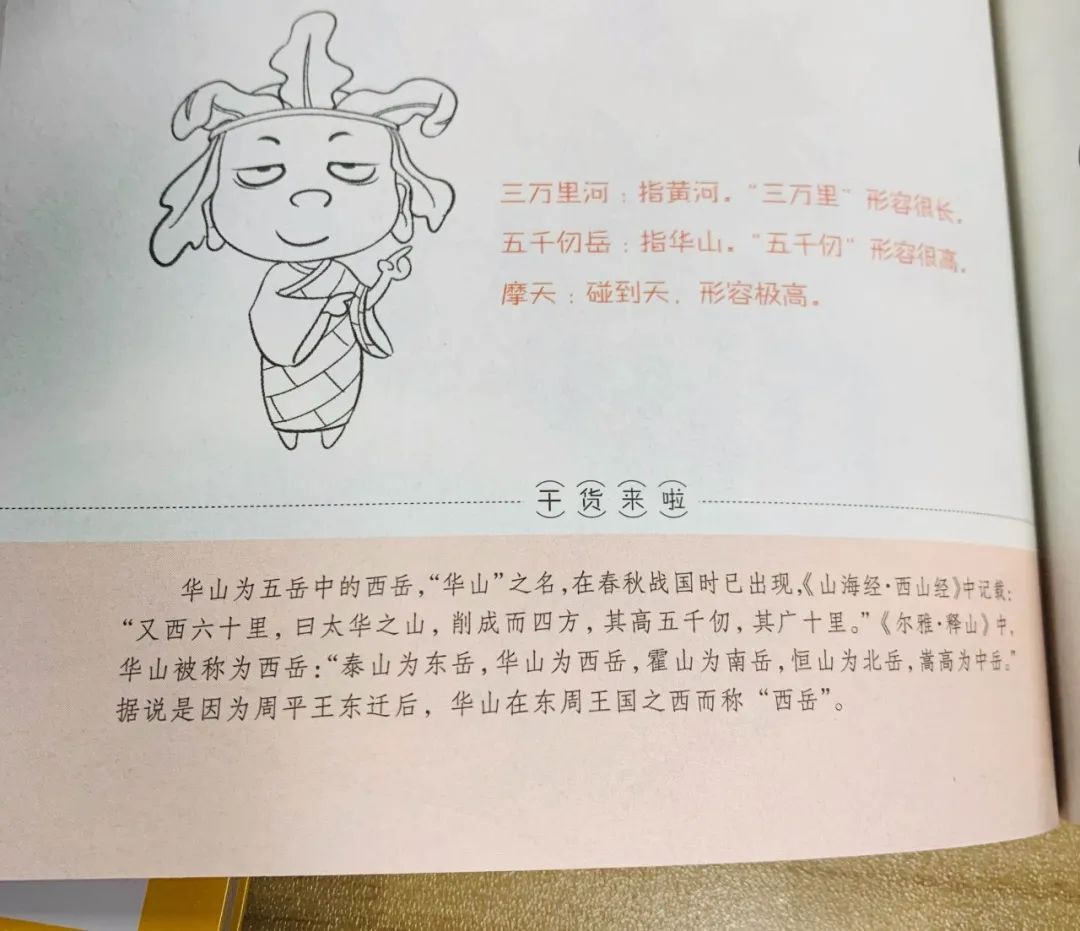 三万里河：指黄河。“三万里”形容很长。
五千仞岳：指华山。“五千仞”形容很高。
摩天：碰到天，形容极高。
干货来啦
华山为五岳中的西岳，“华山”之名，在春秋战国时已出现，《山海经·西山经》中记载：
“又西六十里，曰太华之山，削成而四方，其高五千仞，其广十里。”《尔雅·释山》中，
华山被称为西岳：“泰山为东岳，华山为西岳，霍山为南岳，恒山为北岳，嵩高为中岳。”
据说是因为周平王东迁后，华山在东周王国之西而称“西岳”。